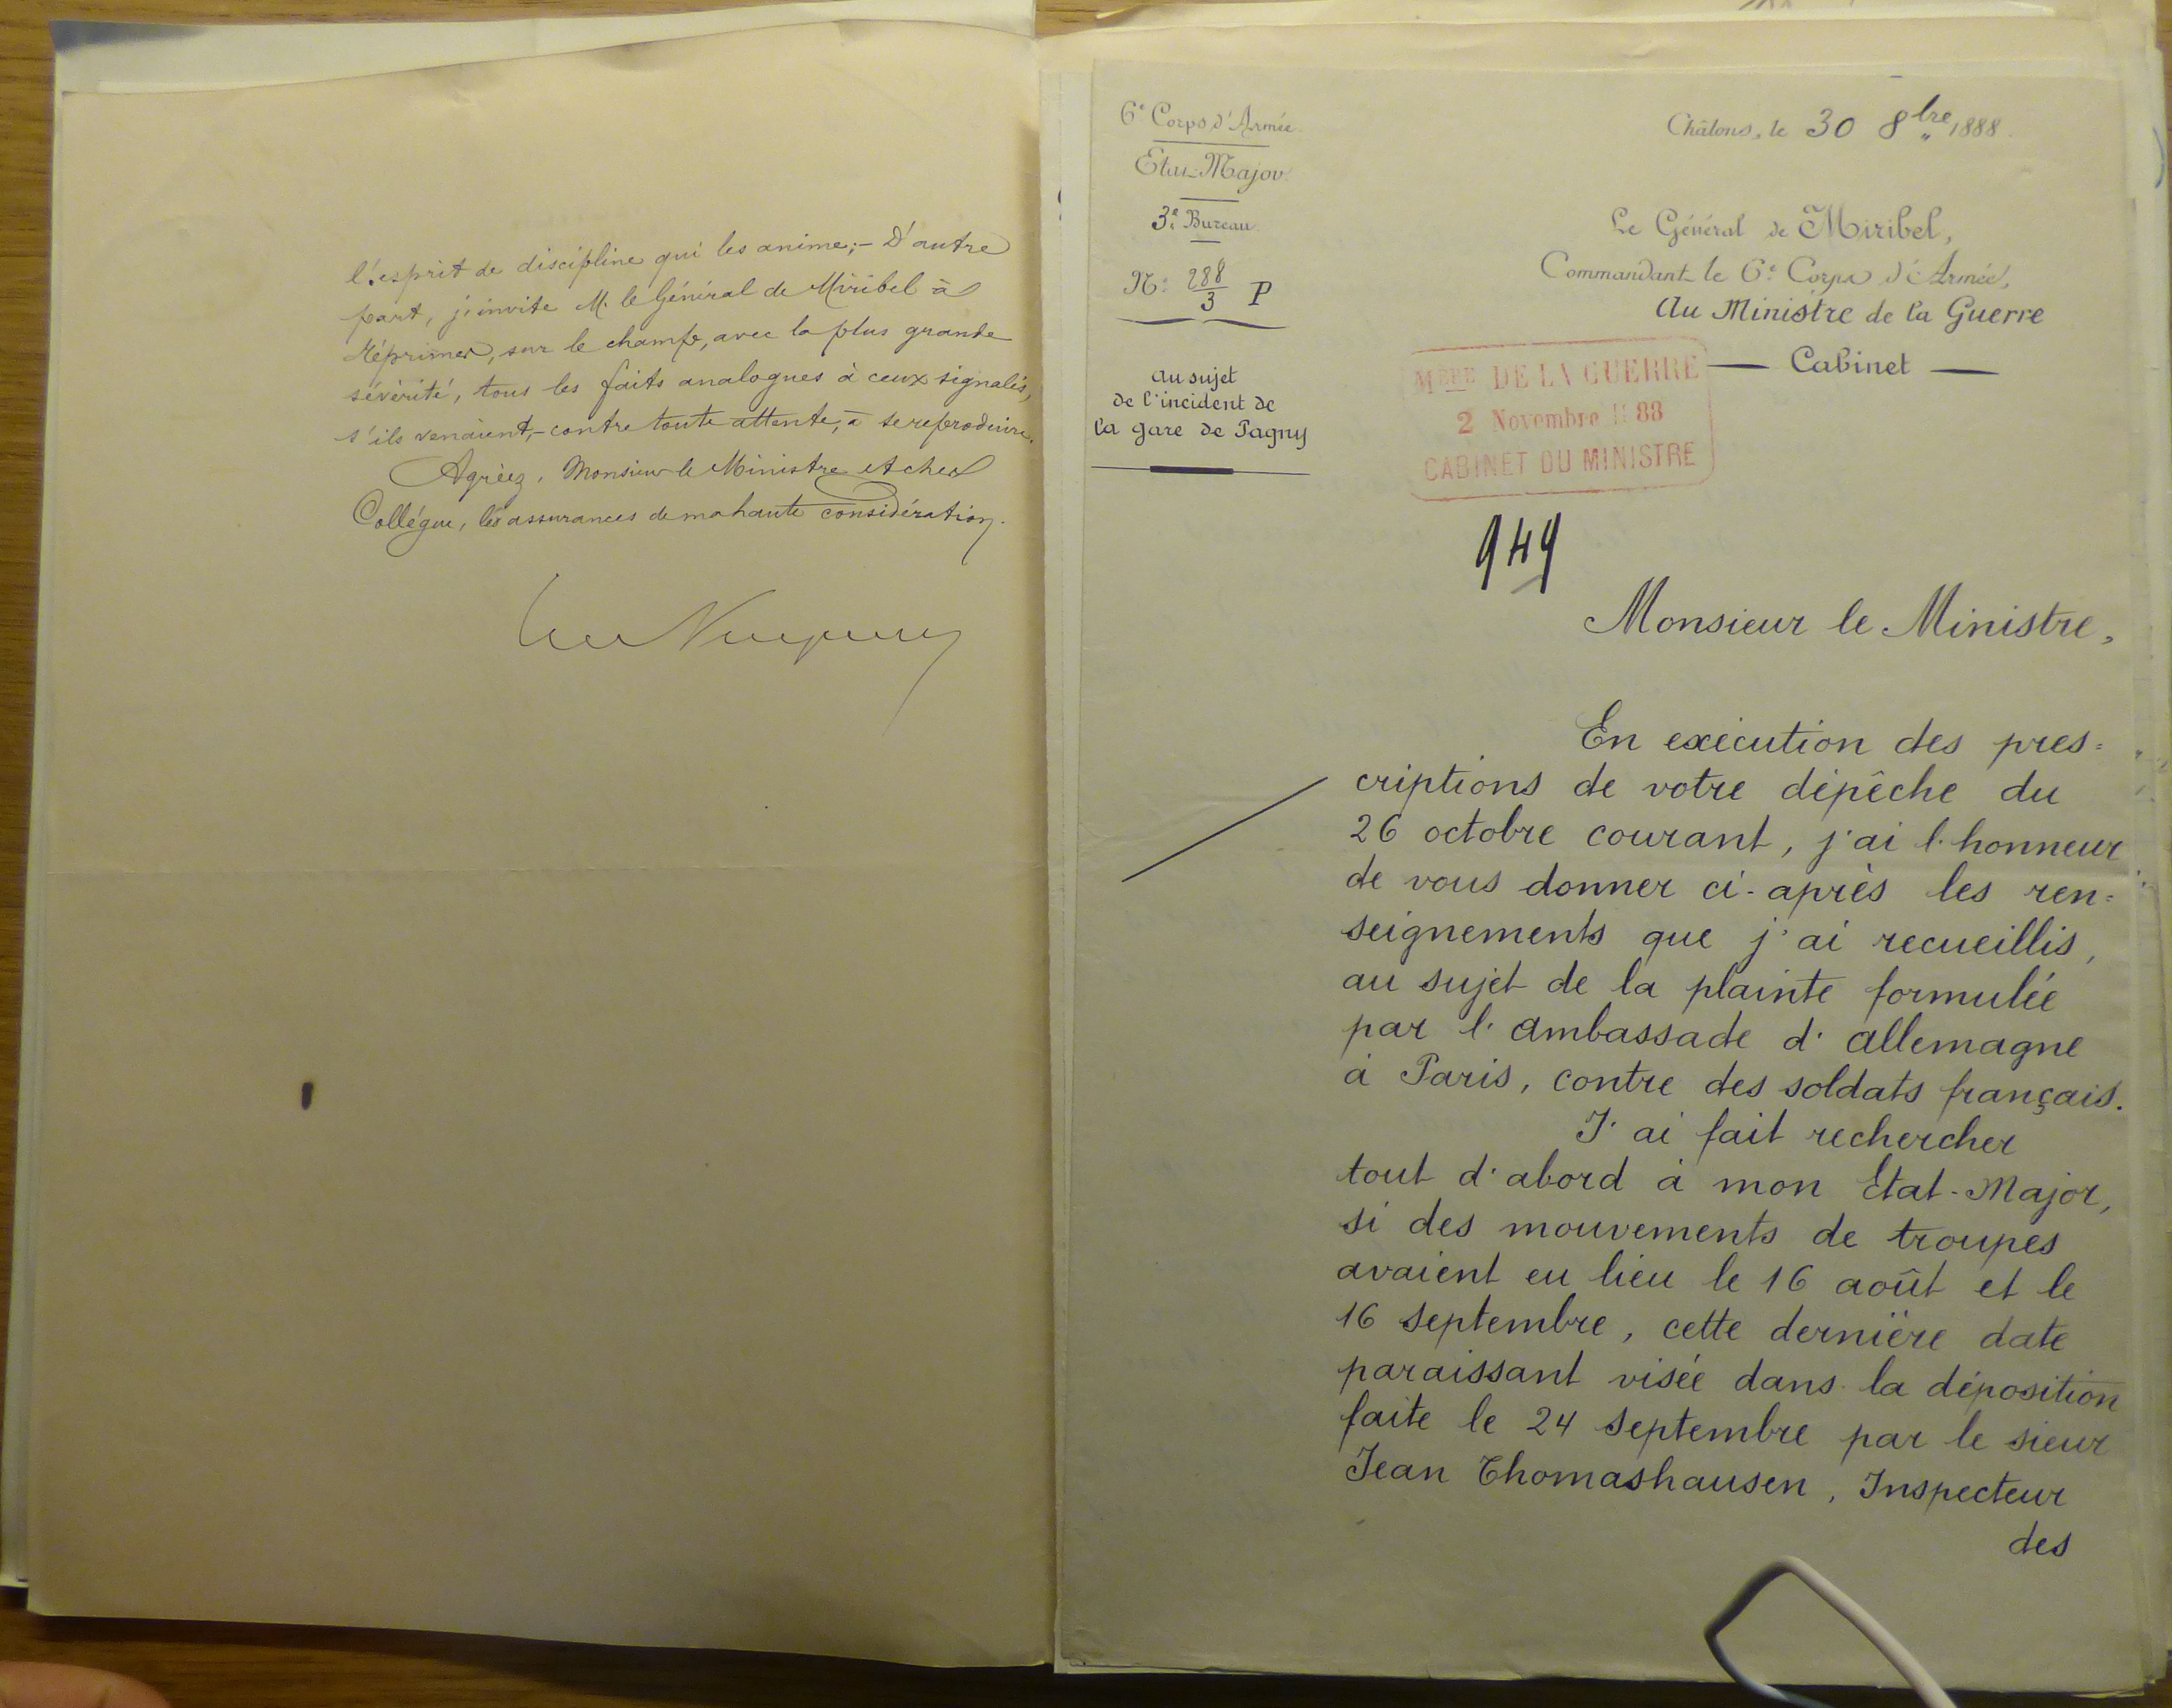 l'esprit de discipline qui les anime;- D'autre
part, j'invite M. le Général de Miribel à
réprimer, sur le champ, avec la plus grande
sévérité, tous les faits analogues à ceux signalés,
s'ils venaient,- contre toute attente, à se reproduire.
Agréez, Monsieur le Ministre et cher
Collègue, les assurances de ma haute considération.
6e Corps d'Armée.
Etat-Major.
3e Bureau.
No: 288/3 P
au sujet
de l'incident de
la gare de Pagny
Châlons, le 30 8bre 1888.
Le Général de Miribel,
Commandant le 6e Corps d'Armée,
Au Ministre de la Guerre
— Cabinet —
MÈRE DE LA GUERRE
2 Novembre 1888
CABINET DU MINISTRE
949
Monsieur le Ministre,
En exécution des pres=
criptions de votre dépêche du
26 octobre courant, j'ai l'honneur
de vous donner ci-après les ren=
seignements que j'ai recueillis,
au sujet de la plainte formulée
par l'ambassade d'allemagne
à Paris, contre des soldats français.
J'ai fait rechercher
tout d'abord à mon Etat-Major,
si des mouvements de troupes
avaient eu lieu le 16 août et le
16 Septembre, cette dernière date
paraissant visée dans la déposition
faite le 24 Septembre par le sieur
Jean Thomashausen, Inspecteur
des